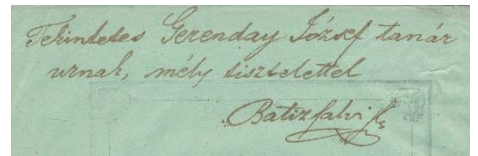 Tekintetes Gerenday József tanár
urnak, mély tisztelettel
Batizfalvi